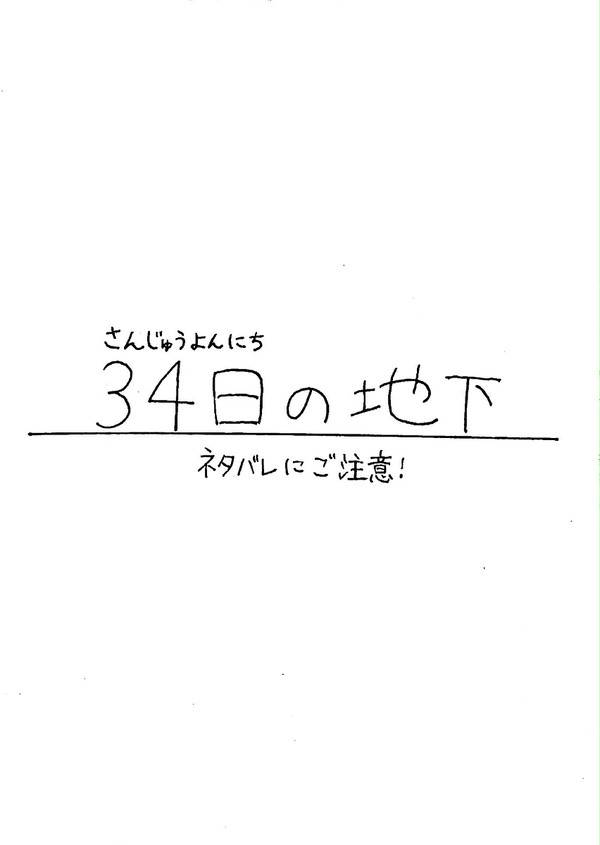 さんじゅうよんにち
34日の地下
ネタバレにご注意!